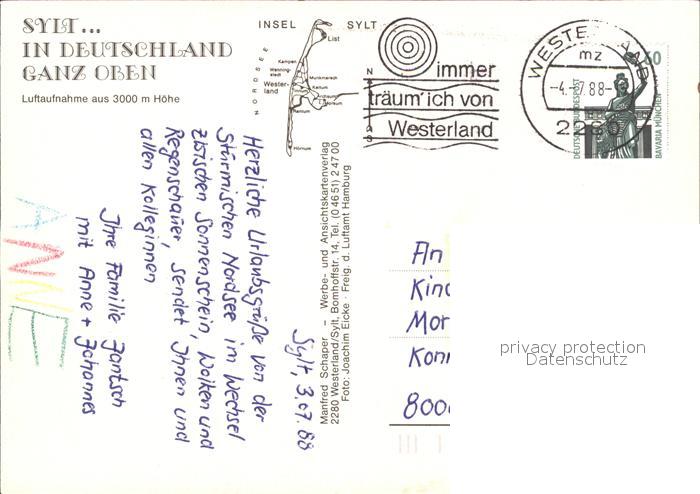 SYLT...
IN DEUTSCHLAND
GANZ OBEN
Luftaufnahme aus 3000 m Höhe
INSEL SYLT
NORDSEE
List
Kampen
Wenning-
stedt
Munkmarsch
Wester-
land
Keitum
Morsum
Rantum
Hörnum
N
S
immer
träum' ich von
Westerland
WESTERLAND
mz
-4.-7.88-
2280
60
DEUTSCHE BUNDESPOST
BAVARIA MÜNCHEN
Sylt, 3.07.88
Herzliche Urlaubsgrüße von der
Stürmischen Nordsee im Wechsel
zwischen Sonnenschein, Wolken und
Regenschauer, sendet Ihnen und
allen Kolleginnen
Ihre Familie Jantsch
mit Anne + Johannes
ANNE
Manfred Schaper – Werbe- und Ansichtskartenverlag
2280 Westerland/Sylt, Bomhoffstr. 14, Tel. (0 46 51) 2 47 00
Foto: Joachim Eicke · Freig. d. Luftamt Hamburg
An
Kind
Mor
Kon
800
privacy protection
Datenschutz